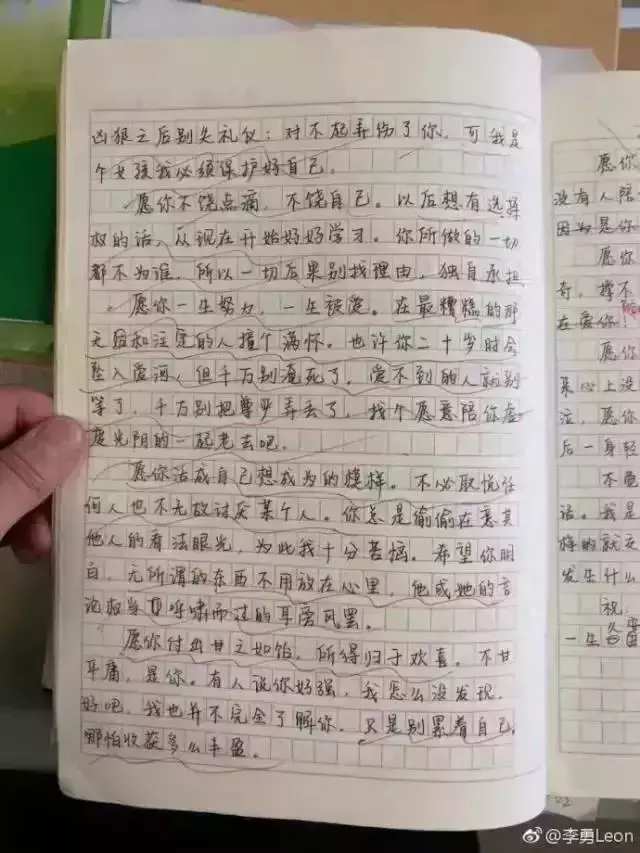 凶狠之后别失礼仪：对不起弄伤了你，可我是
个女孩我必须保护好自己。
愿你不饶点滴，不饶自己。以后想有选择
权的话，从现在开始好好学习。你所做的一切
都不为谁，所以一切后果别找理由，独自承担
愿你一生努力，一生被爱。在最糟糕的那
天和注定的人撞个满怀。也许你二十岁时会
坠入爱河，但千万别淹死了，爱不到的人就别
等了，千万别把尊严弄丢了，找个愿意陪你虚
度光阴的一起老去吧。
愿你活成自己想成为的模样。不必取悦任
何人也不无故讨厌某个人。你总是偷偷在意其
他人的看法眼光，为此我十分苦恼。希望你明
白，无所谓的东西不用放在心里，他或她的言
论权当呼啸而过的耳旁风罢。
愿你付出甘之如饴，所得归于欢喜。不甘
平庸，是你。有人说你好强，我怎么没发现，
好吧，我也并不完全了解你，只是别累着自己，
哪怕收获多么丰盈。
愿你
没有人陪
因为是你
愿你
奇，撑不
在爱你
愿你
某心上没
泣，愿你
后一身轻
不
话。我是
发生什么
祝
一生
@李勇Leon